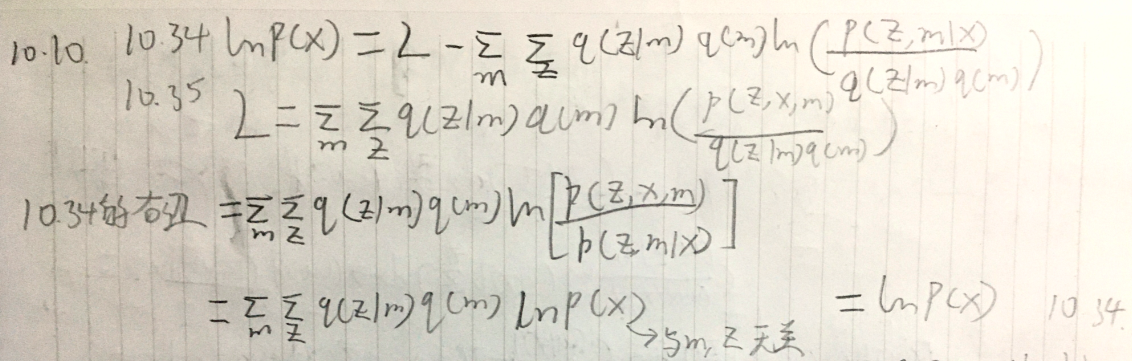 10.10. 10.34 lnP(X) = L - Σ_m Σ_z q(Z|m) q(m) ln(P(Z,m|X) / q(Z|m)q(m))
10.35 L = Σ_m Σ_z q(Z|m) q(m) ln(p(Z,X,m) / q(Z|m)q(m))
10.34的右边 = Σ_m Σ_z q(Z|m)q(m) ln[p(Z,X,m) / p(Z,m|X)]
= Σ_m Σ_z q(Z|m)q(m) lnP(X) →与m,Z无关 = lnP(X) 10.34.